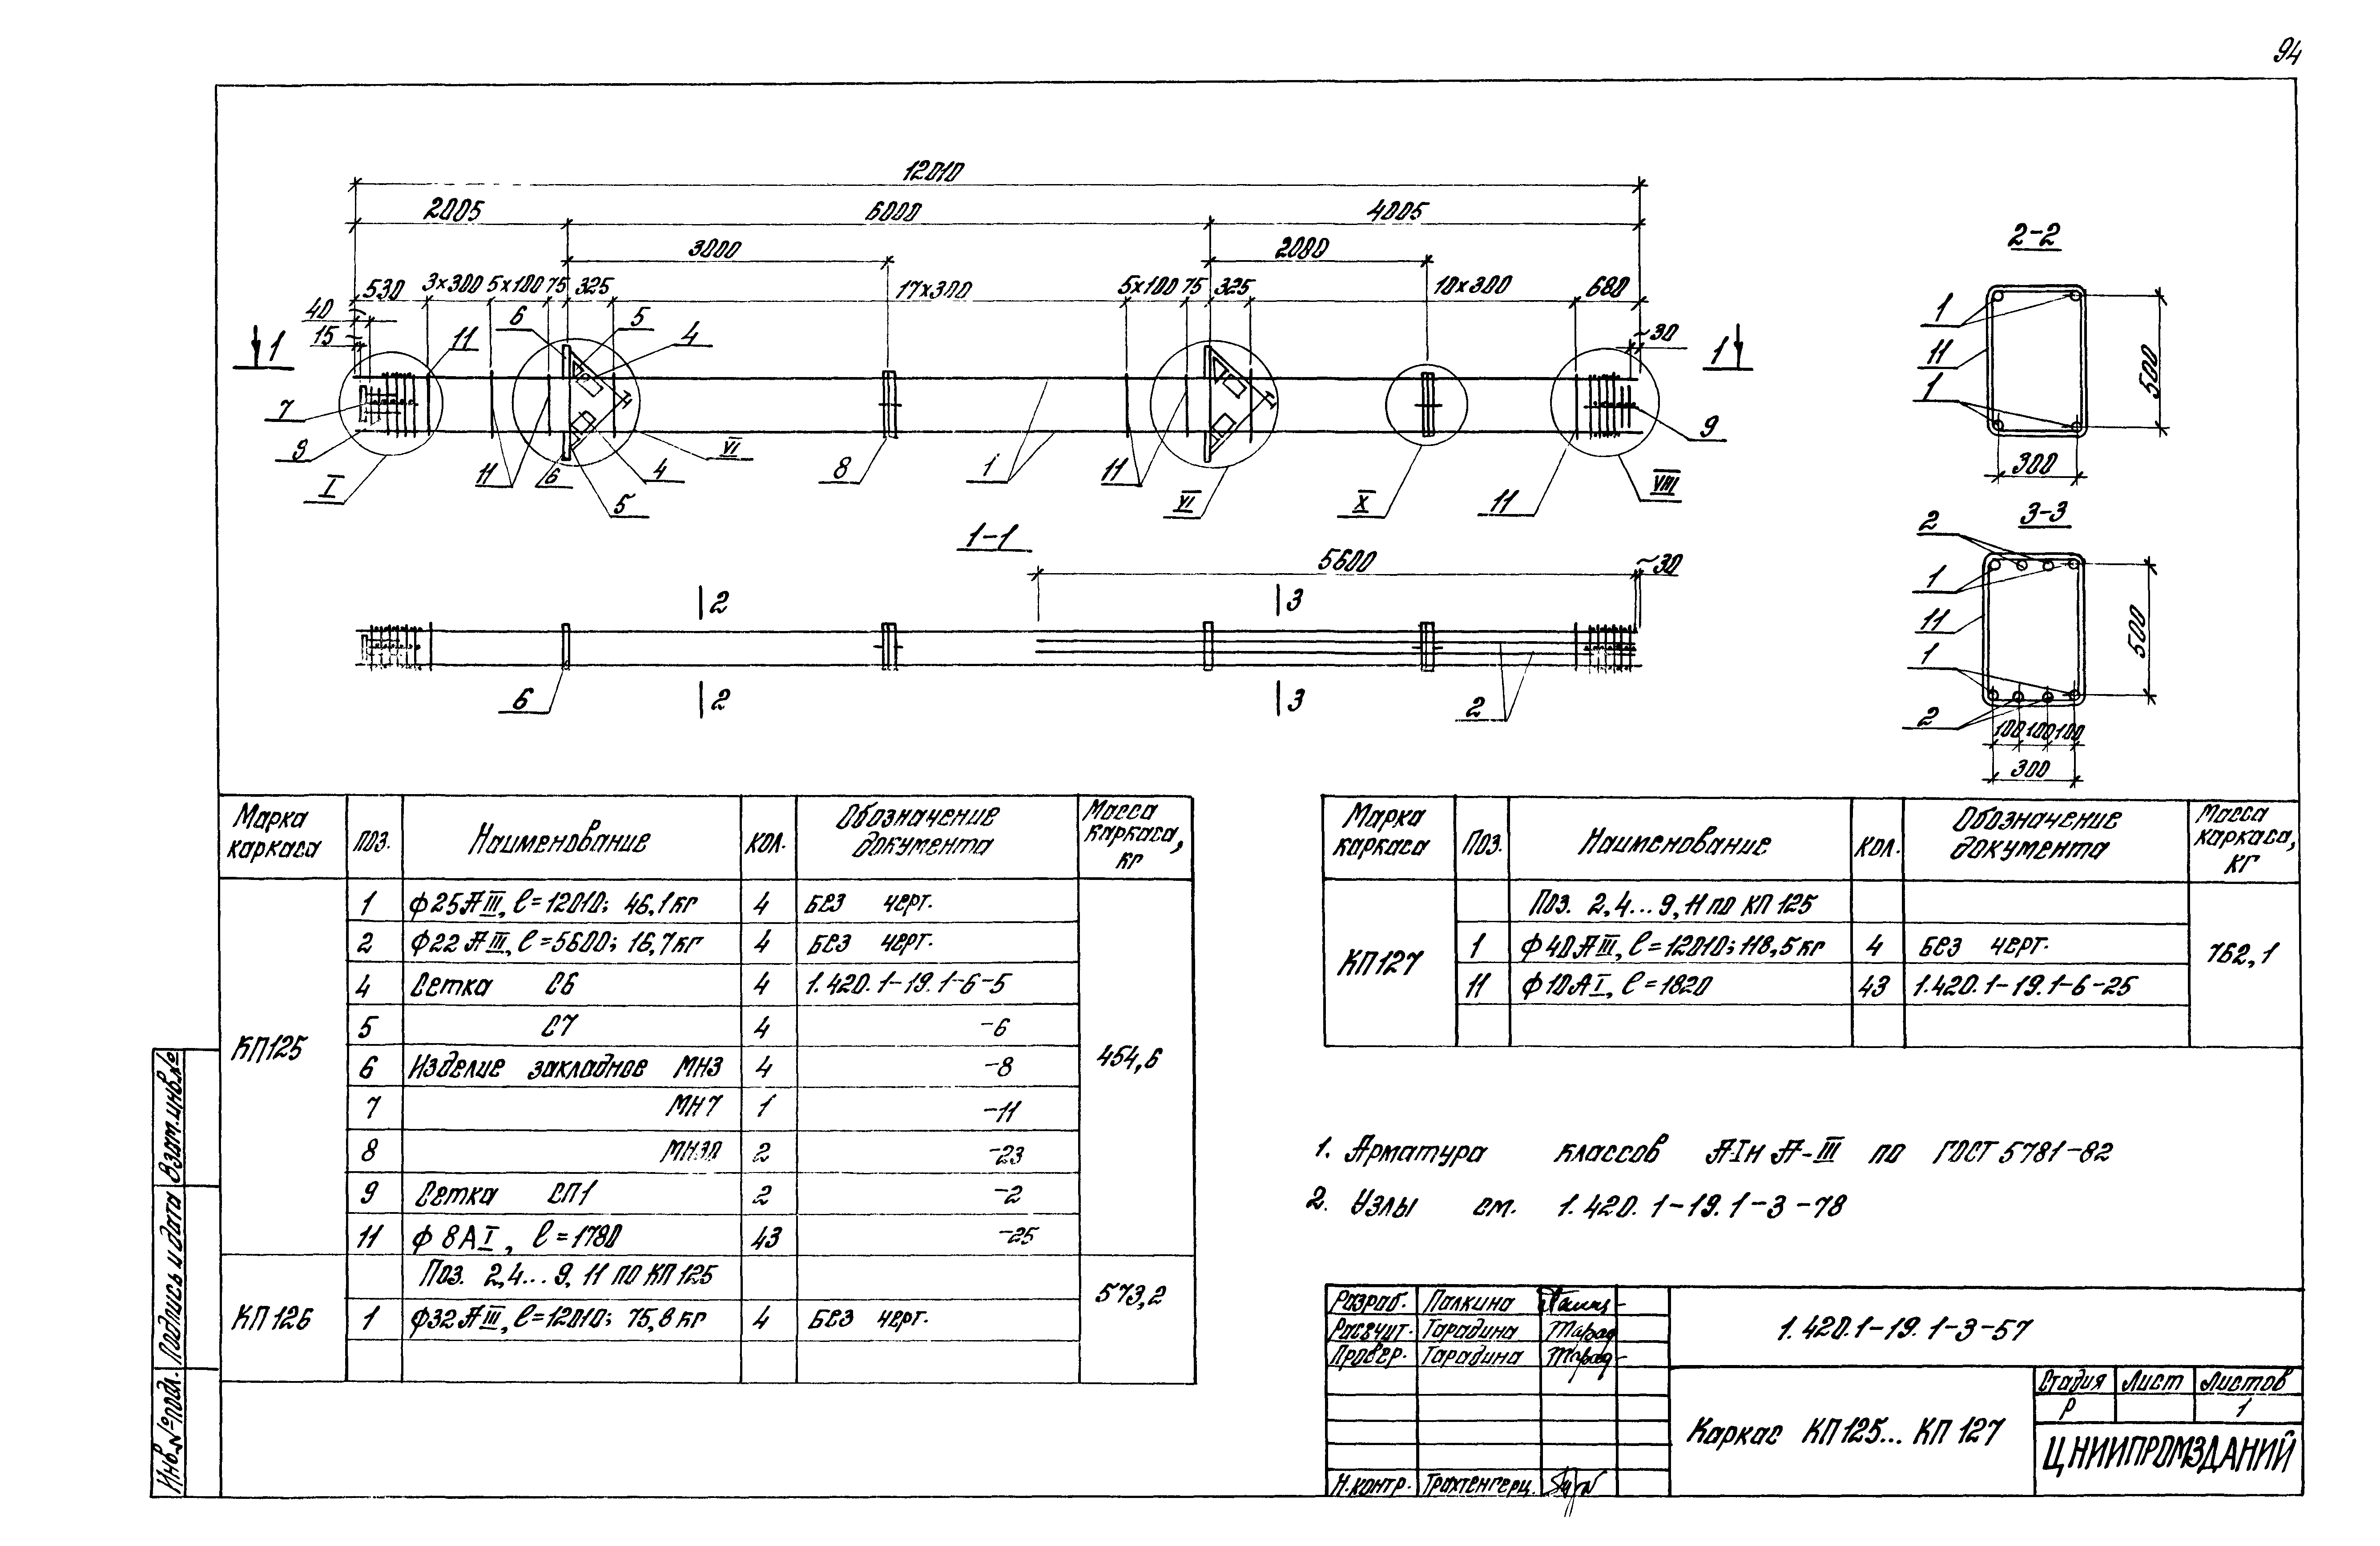 94
12010
2005 6000 4005
3000 2080
530 3×300 5×100 75 325 17×300 5×100 75 325 10×300 680
40 6 5 4 ~30
15 11
1 1
7 9 I 11 6 5 4 VI 8 1 11 VI X 11 VIII 9
1-1
5600 ~30
2 3
6 2 3 2
2-2
1
11
1
500
300
3-3
2
1
11
1
2
500
100 100 100
300
Марка каркаса поз. Наименование кол. Обозначение документа Масса каркаса, кг
КП125 454,6
1 ф25АIII, ℓ=12010; 46,1кг 4 без черт.
2 ф22АIII, ℓ=5600; 16,7кг 4 без черт.
4 Сетка С6 4 1.420.1-19.1-6-5
5 С7 4 -6
6 Изделие закладное МН3 4 -8
7 МН7 1 -11
8 МН30 2 -23
9 Сетка СП1 2 -2
11 ф8АI, ℓ=1780 43 -25
КП126 573,2
Поз. 2,4...9, 11 по КП125
1 ф32АIII, ℓ=12010; 75,8кг 4 без черт.
Марка каркаса поз. Наименование кол. Обозначение документа Масса каркаса, кг
КП127 762,1
Поз. 2,4...9, 11 по КП125
1 ф40АIII, ℓ=12010; 118,5кг 4 без черт.
11 ф10АI, ℓ=1820 43 1.420.1-19.1-6-25
1. Арматура классов АIи А-III по ГОСТ 5781-82
2. Узлы см. 1.420.1-19.1-3-78
Разраб. Палкина
Рассчит. Тарадина
Провер. Тарадина
Н.контр. Трахтенгерц.
1.420.1-19.1-3-57
Каркас КП125... КП127
Стадия Лист Листов
Р 1
ЦНИИПРОМЗДАНИЙ
Инв.№подл. Подпись и дата Взам.инв.№